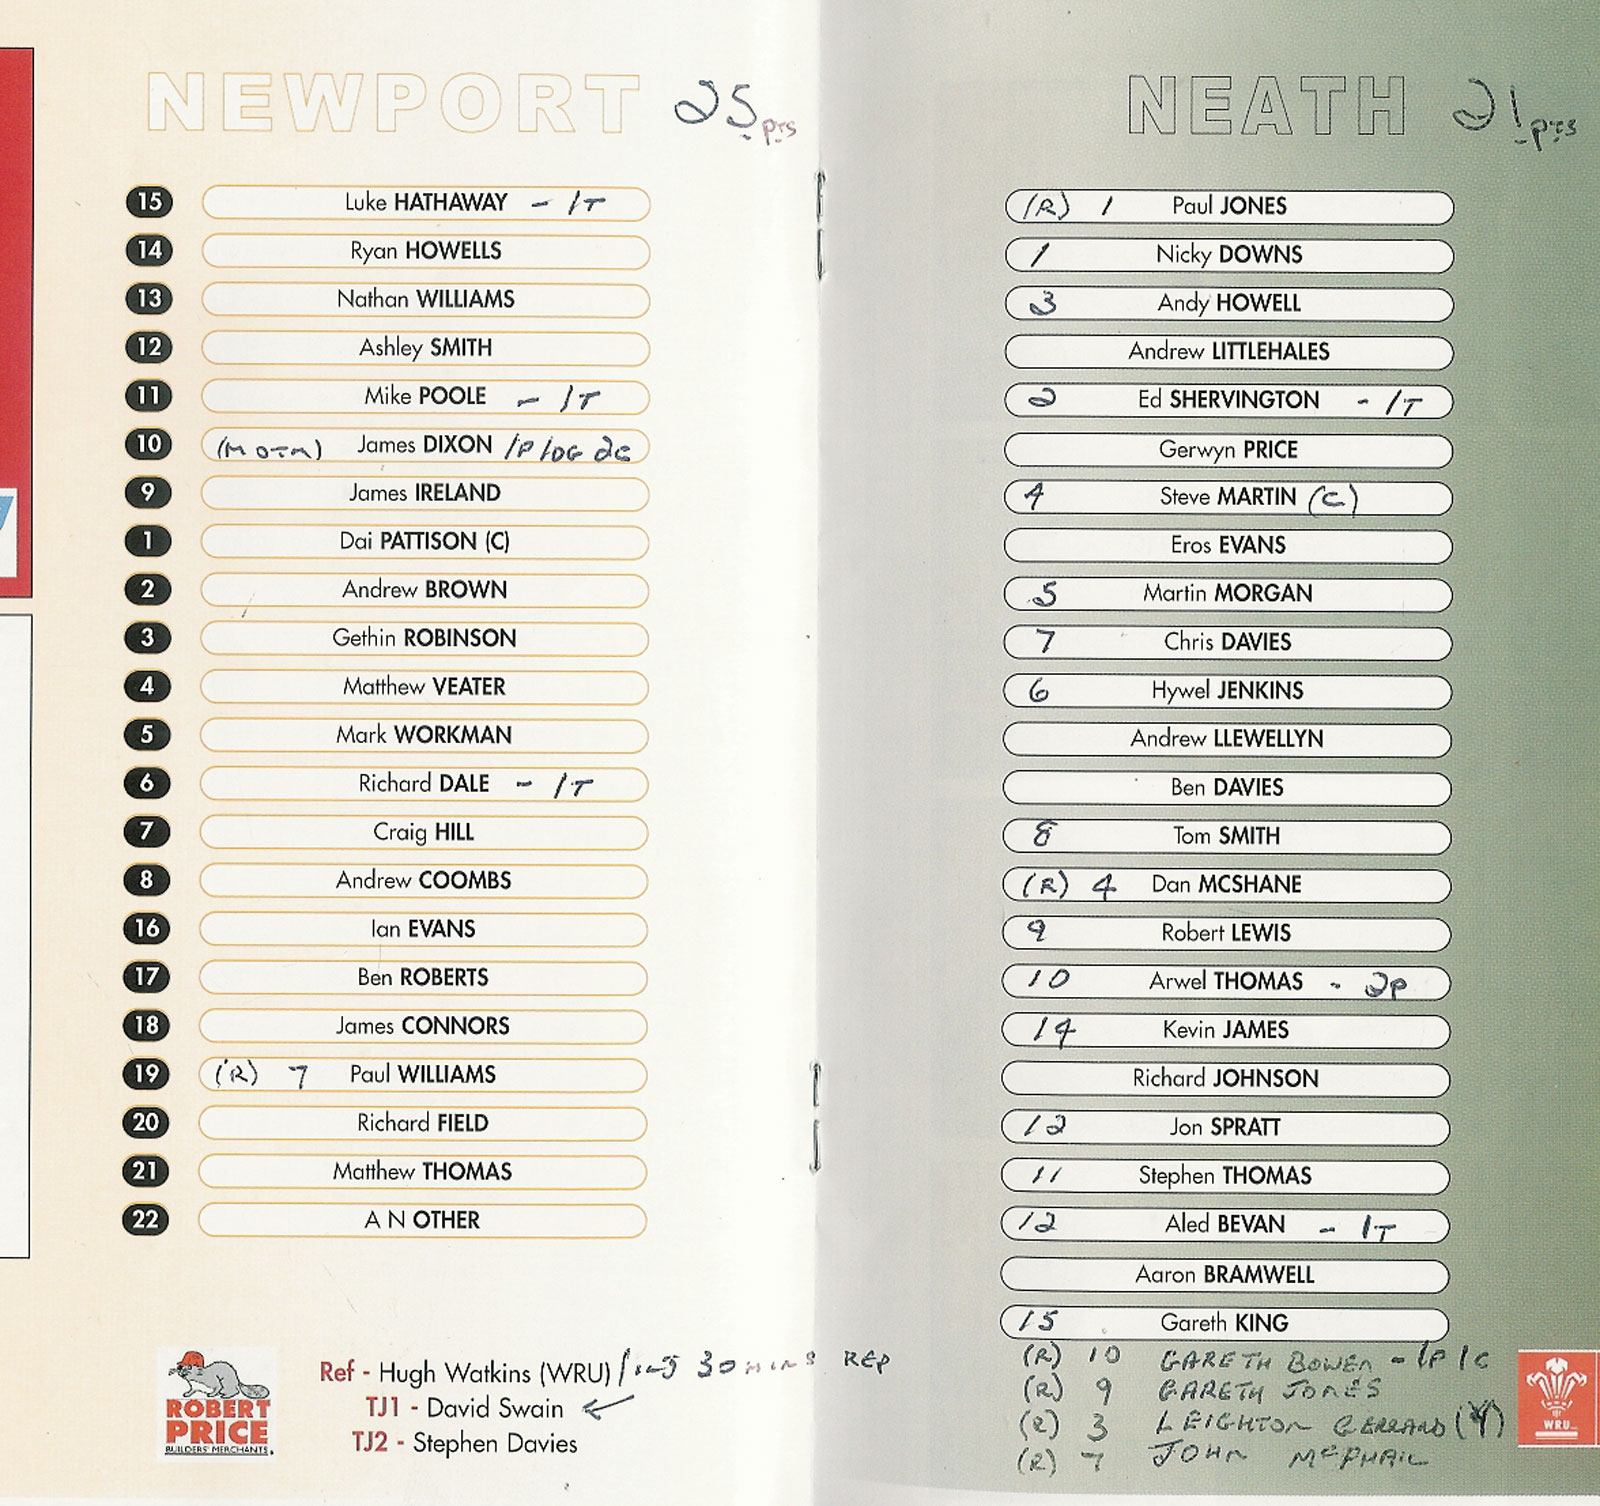 NEWPORT 25 pts
15 Luke HATHAWAY - 1T
14 Ryan HOWELLS
13 Nathan WILLIAMS
12 Ashley SMITH
11 Mike POOLE - 1T
10 (MOTM) James DIXON 1P 1DG 2C
9 James IRELAND
1 Dai PATTISON (C)
2 Andrew BROWN
3 Gethin ROBINSON
4 Matthew VEATER
5 Mark WORKMAN
6 Richard DALE - 1T
7 Craig HILL
8 Andrew COOMBS
16 Ian EVANS
17 Ben ROBERTS
18 James CONNORS
19 (R) 7 Paul WILLIAMS
20 Richard FIELD
21 Matthew THOMAS
22 A N OTHER
ROBERT
PRICE
BUILDERS' MERCHANTS
Ref - Hugh Watkins (WRU) / inj 30 mins REP
TJ1 - David Swain
TJ2 - Stephen Davies
NEATH 21 pts
(R) 1 Paul JONES
1 Nicky DOWNS
3 Andy HOWELL
Andrew LITTLEHALES
2 Ed SHERVINGTON - 1T
Gerwyn PRICE
4 Steve MARTIN (C)
Eros EVANS
5 Martin MORGAN
7 Chris DAVIES
6 Hywel JENKINS
Andrew LLEWELLYN
Ben DAVIES
8 Tom SMITH
(R) 4 Dan MCSHANE
9 Robert LEWIS
10 Arwel THOMAS - 2P
14 Kevin JAMES
Richard JOHNSON
12 Jon SPRATT
11 Stephen THOMAS
12 Aled BEVAN - 1T
Aaron BRAMWELL
15 Gareth KING
(R) 10 GARETH BOWEN - 1P 1C
(R) 9 GARETH JONES
(R) 3 LEIGHTON GERRARD (Y)
(R) 7 JOHN McPHAIL
WRU